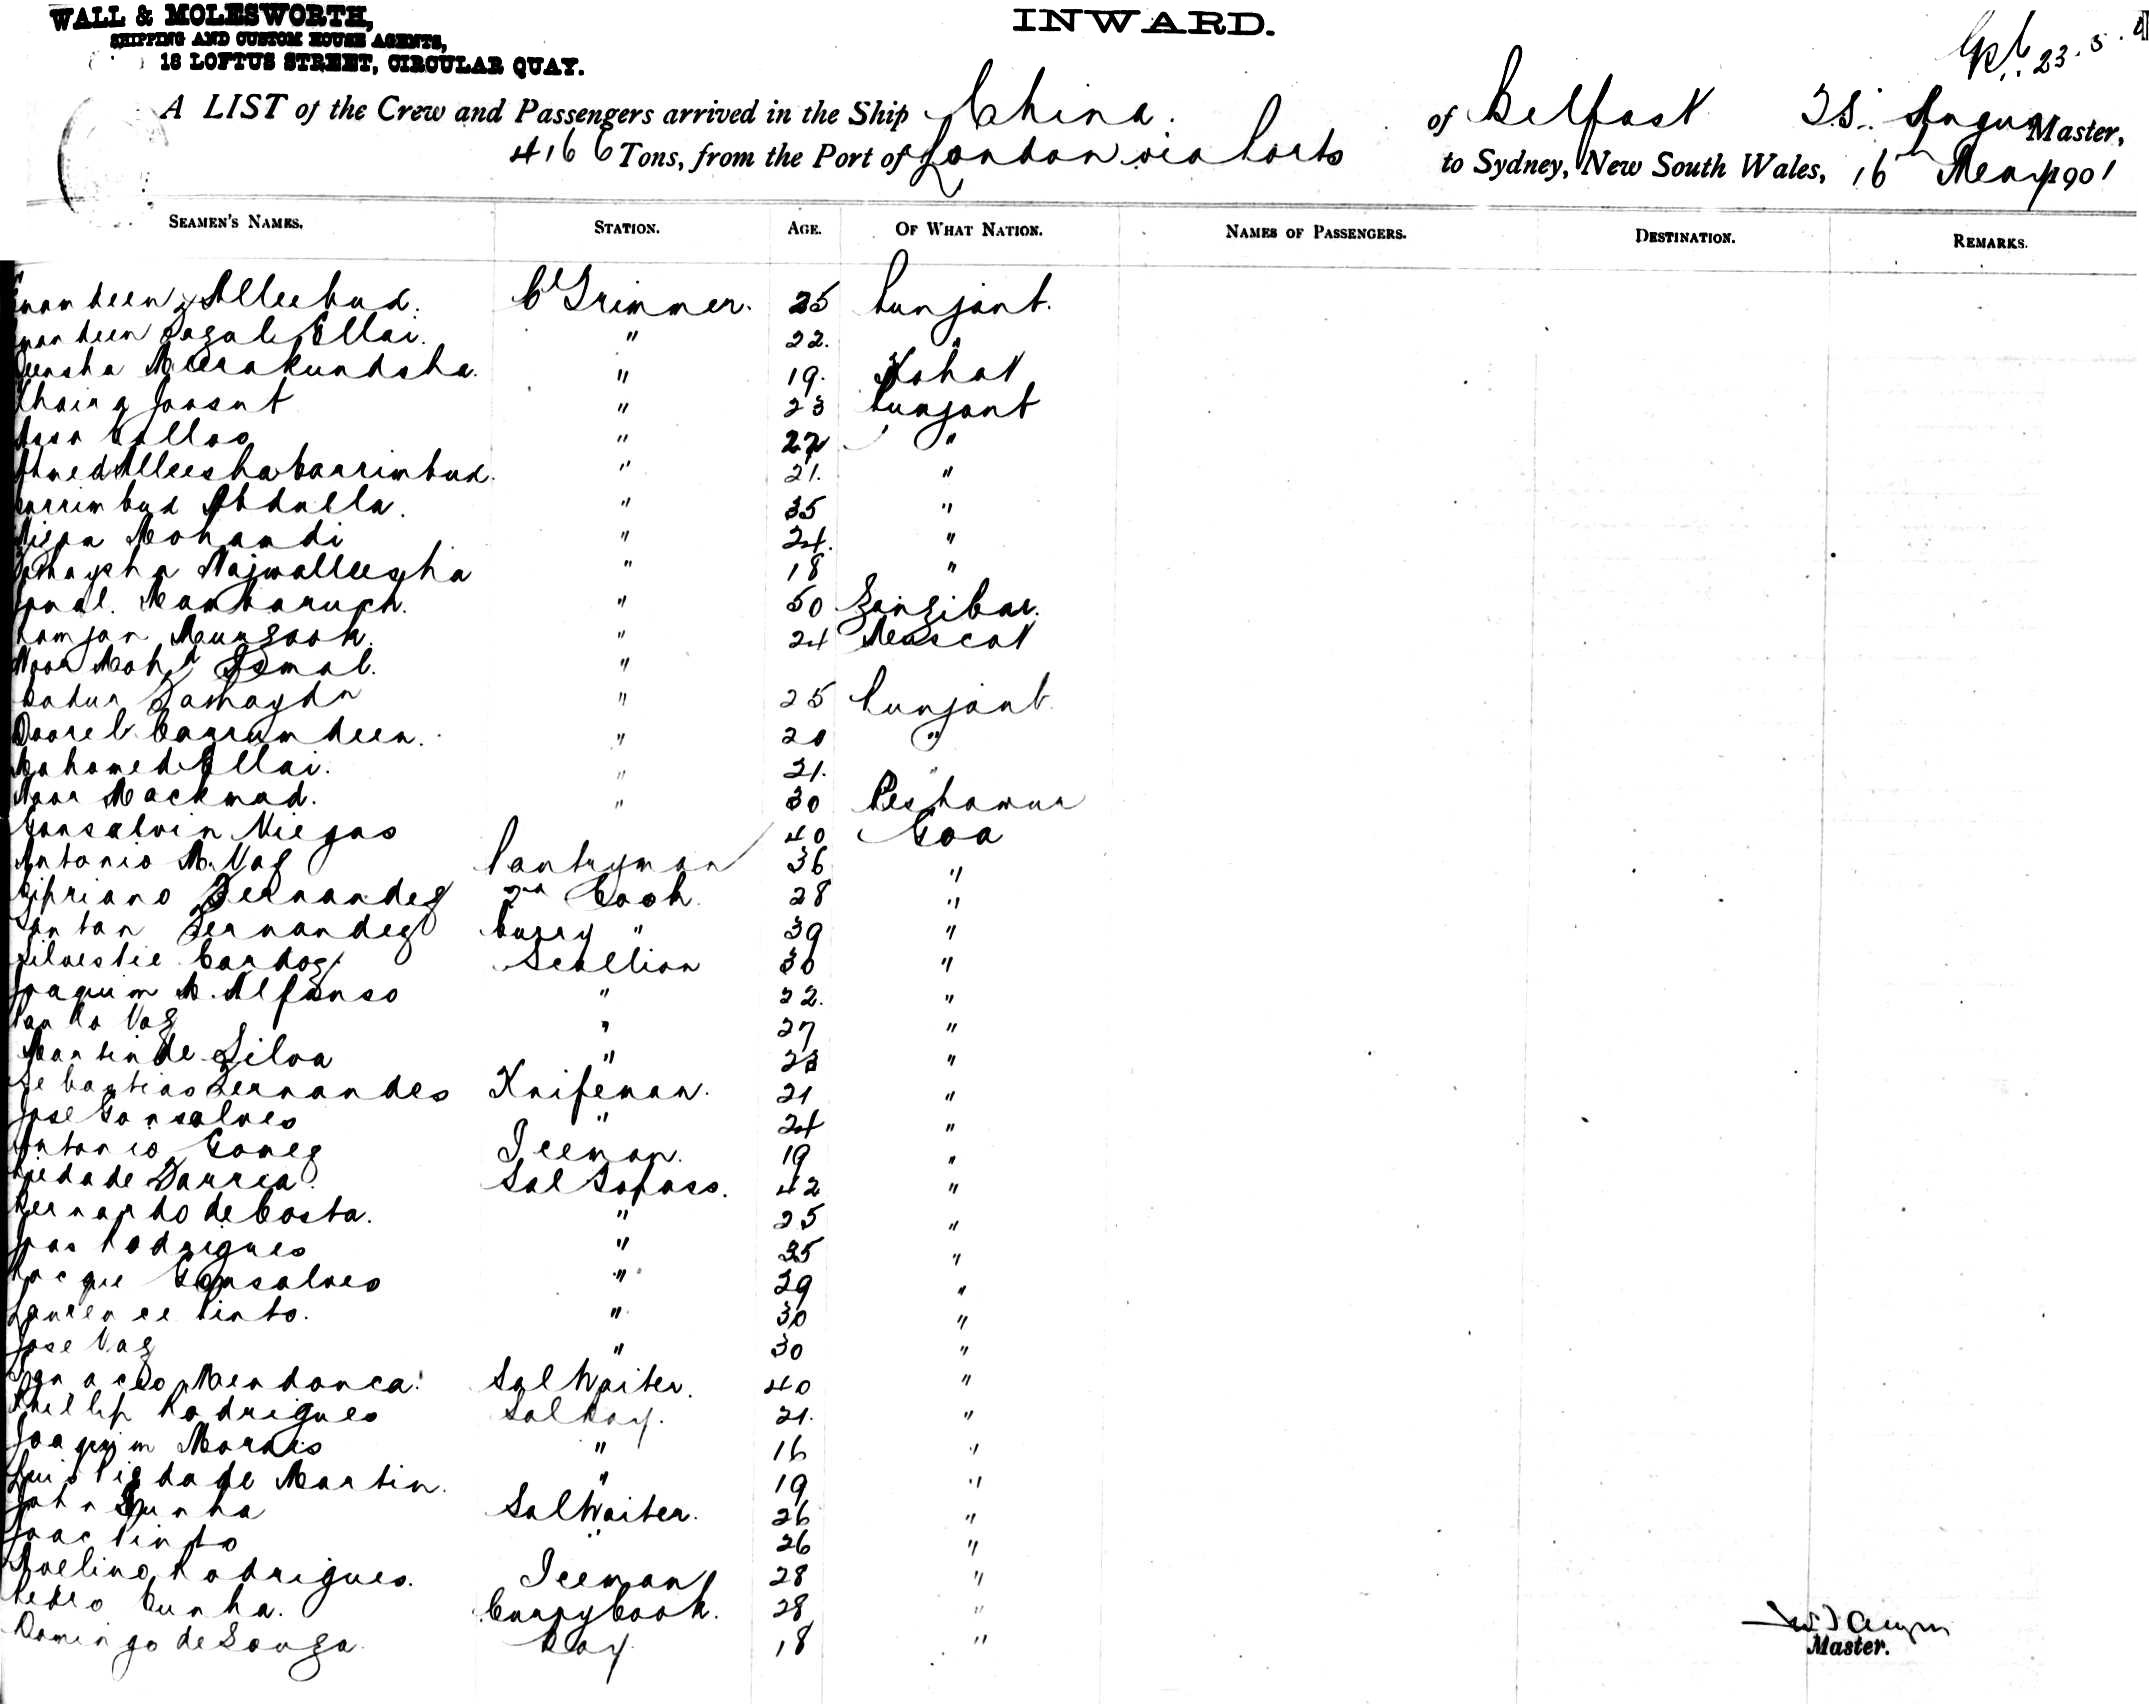 WALL & MOLESWORTH,
SHIPPING AND CUSTOM HOUSE AGENTS,
18 LOFTUS STREET, CIRCULAR QUAY.
INWARD.
23.5.
A LIST of the Crew and Passengers arrived in the Ship China. of Belfast Angus Master,
4166 Tons, from the Port of London via Ports to Sydney, New South Wales, 16th May 1901
SEAMEN'S NAMES. STATION. AGE. OF WHAT NATION. NAMES OF PASSENGERS. DESTINATION. REMARKS.
Alleebux. Cl Trimmer. 25 Punjaub.
Ellai. " 22. "
" 19. Kohat
" 23 Punjaub
" 22 "
" 21. "
Abdulla. " 35 "
" 24. "
" 18 "
" 50 Zanzibar.
" 24 Muscat
Noor Mohd Ismal. "
" 25 Punjaub.
" 20 "
Mahomed Ellai. " 21. "
Noor Mackmad. " 30 Peshawur
Viegas 40 Goa
Antonio M. Vaz Pantryman 36 "
Cipriano Fernandez 2nd Cook. 28 "
Santan Fernandez Curry " 39 "
Silvestie Cardoz Scullion 30 "
Joaquim M. Alfonso " 22. "
Vaz " 27 "
Martin de Silva " 23 "
Sebastiao Fernandes Knifeman. 21 "
Jose Gonsalves " 24 "
Antonio Gomez Iceman. 19 "
Piedade Sal Topass. 42 "
Bernardo de Costa. " 25 "
Joao Rodrigues " 35 "
Roque Gonsalves " 29 "
Laurence Pinto. " 30 "
Jose Vaz " 30 "
Ignacio Mendonca. Sal Waiter. 40 "
Phillip Rodrigues Sal Boy. 21. "
Joaquim Morais " 16 "
Luis Piedade Martin. " 19 "
John Cunha Sal Waiter. 26 "
Isaac Pinto " 26 "
Avelino Rodrigues. Iceman 28 "
Pedro Cunha. Curry Cook. 28 "
Domingo de Souza. Boy 18 "
Master.